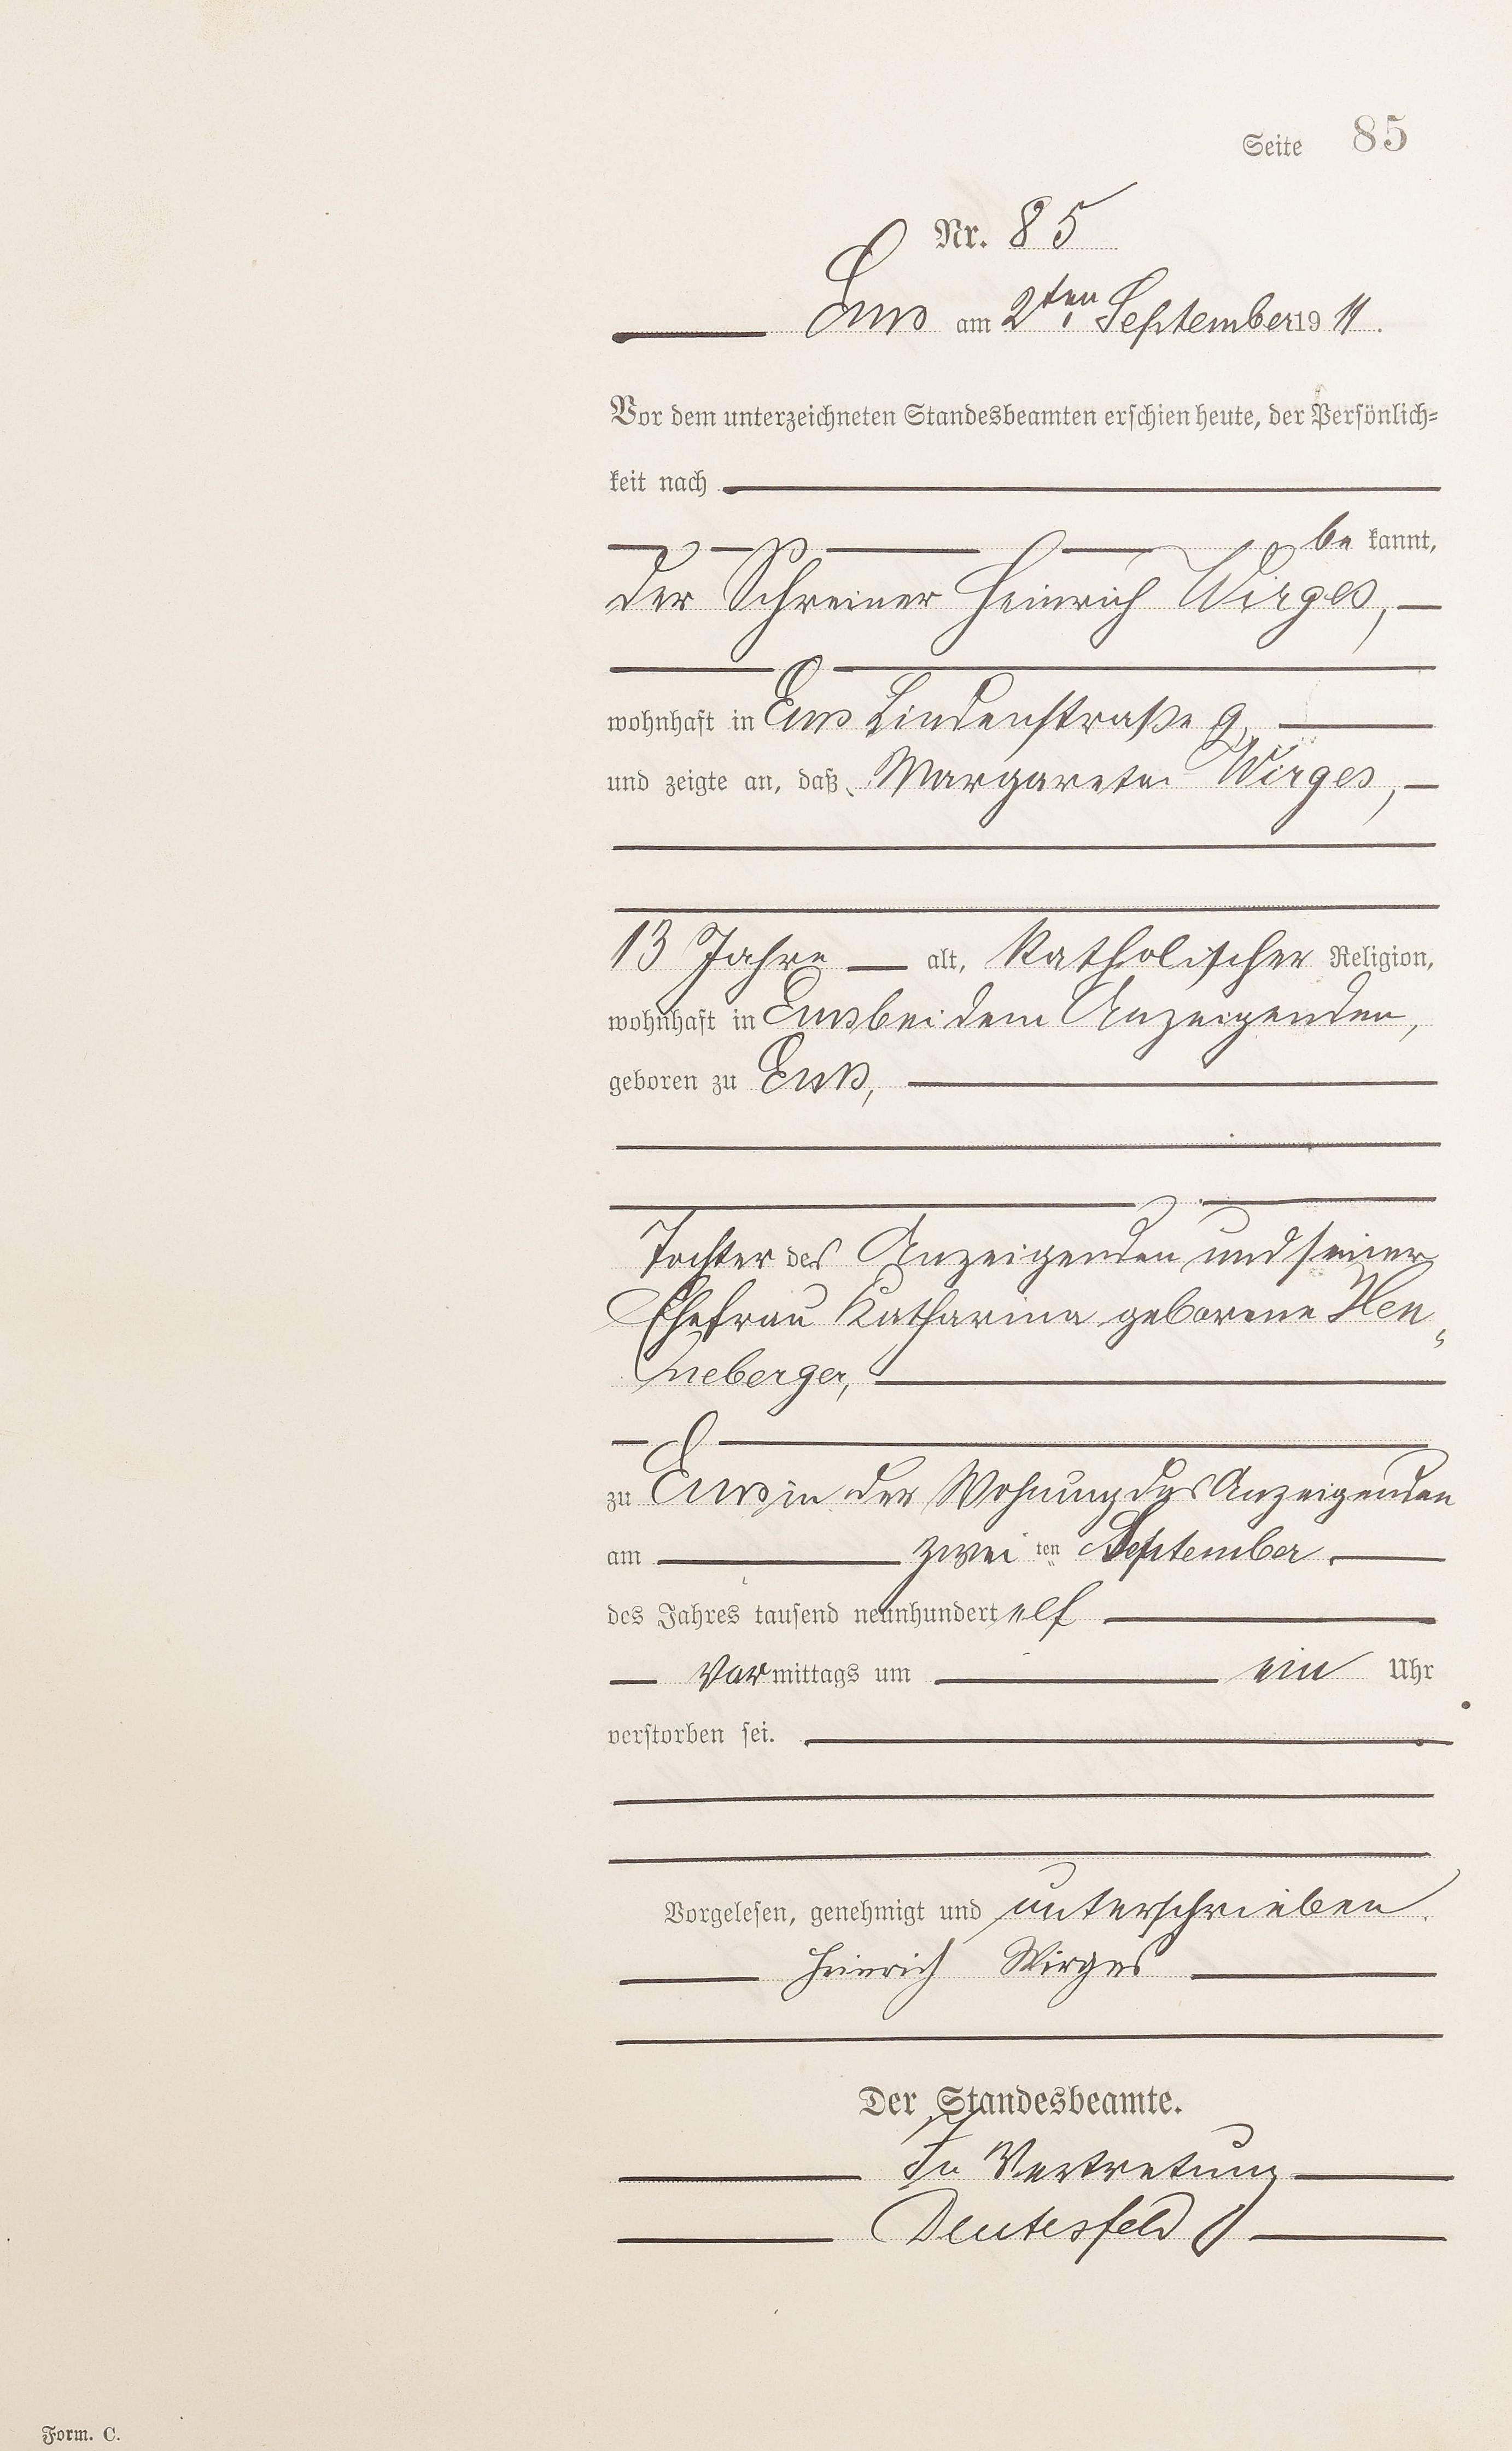 Seite 85
Nr. 85
Ems am 2ten September 1911.
Vor dem unterzeichneten Standesbeamten erschien heute, der Persönlich=
keit nach
be kannt,
der Schreiner Heinrich Wirges,
wohnhaft in Ems Lindenstraße 9,
und zeigte an, daß Margareta Wirges,
13 Jahre alt, katholischer Religion,
wohnhaft in Ems bei dem Anzeigenden,
geboren zu Ems,
Tochter des Anzeigenden und seiner
Ehefrau Katharina geborene Hen=
neberger,
zu Ems in der Wohnung des Anzeigenden
am zwei ten September
des Jahres tausend neunhundert elf
Vor mittags um ein Uhr
verstorben sei.
Vorgelesen, genehmigt und unterschrieben.
Heinrich Wirges
Der Standesbeamte.
In Vertretung
Deutesfeld
Form. C.